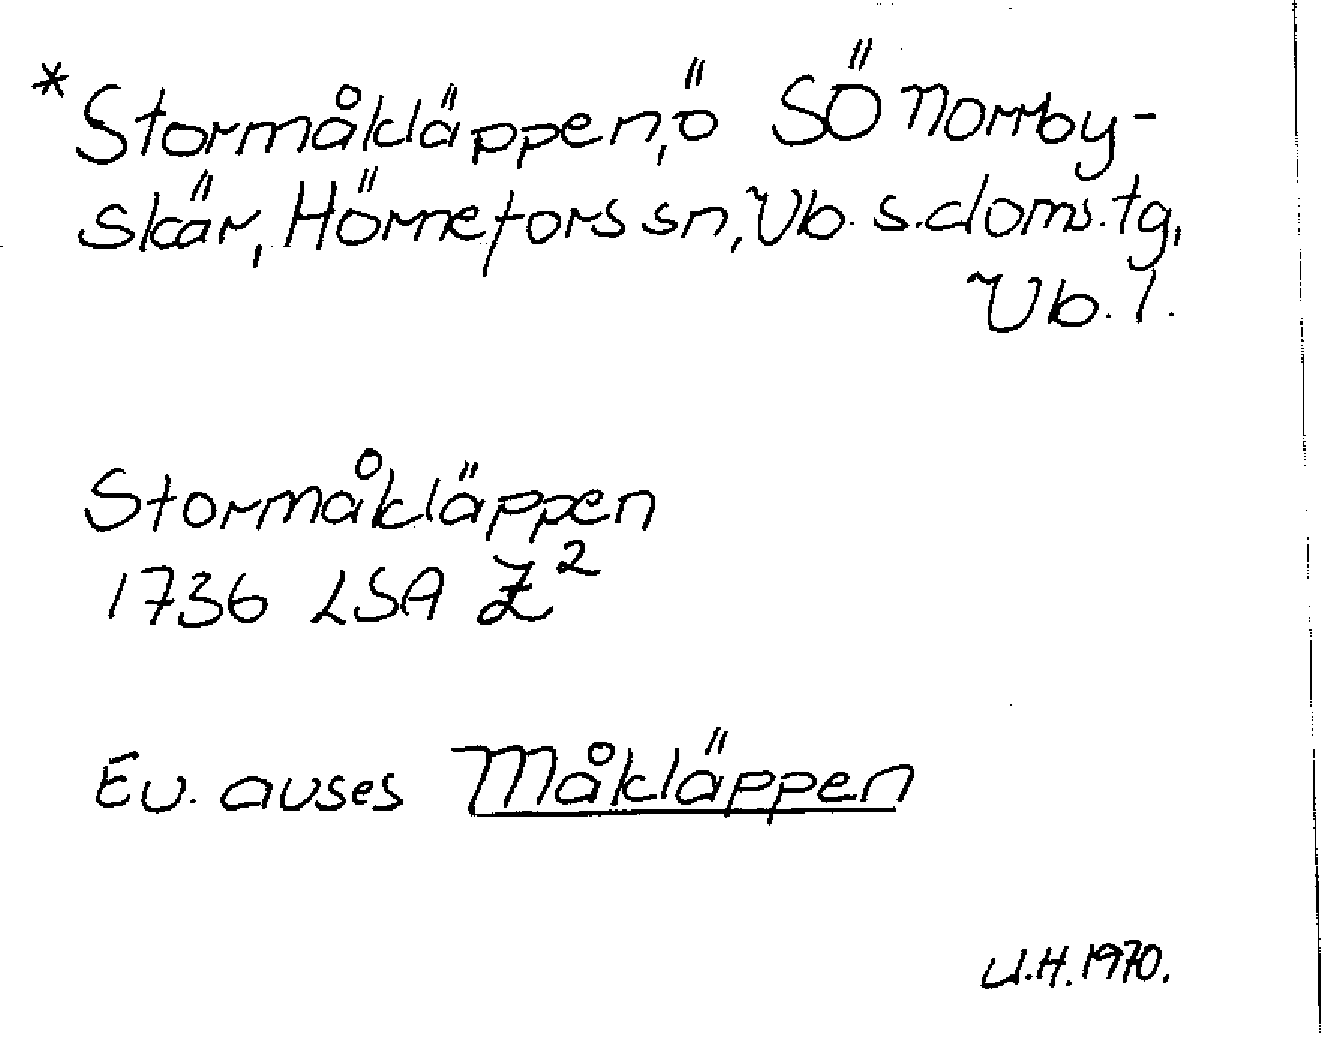 *Stormåkläppen, ö SÖ Norrby-
skär, Hörnefors sn, Vb. s. doms. tg,
Vb. l.
Stormåkläppen
1736 LSA Z²
Ev. avses Måkläppen
U.H. 1970.